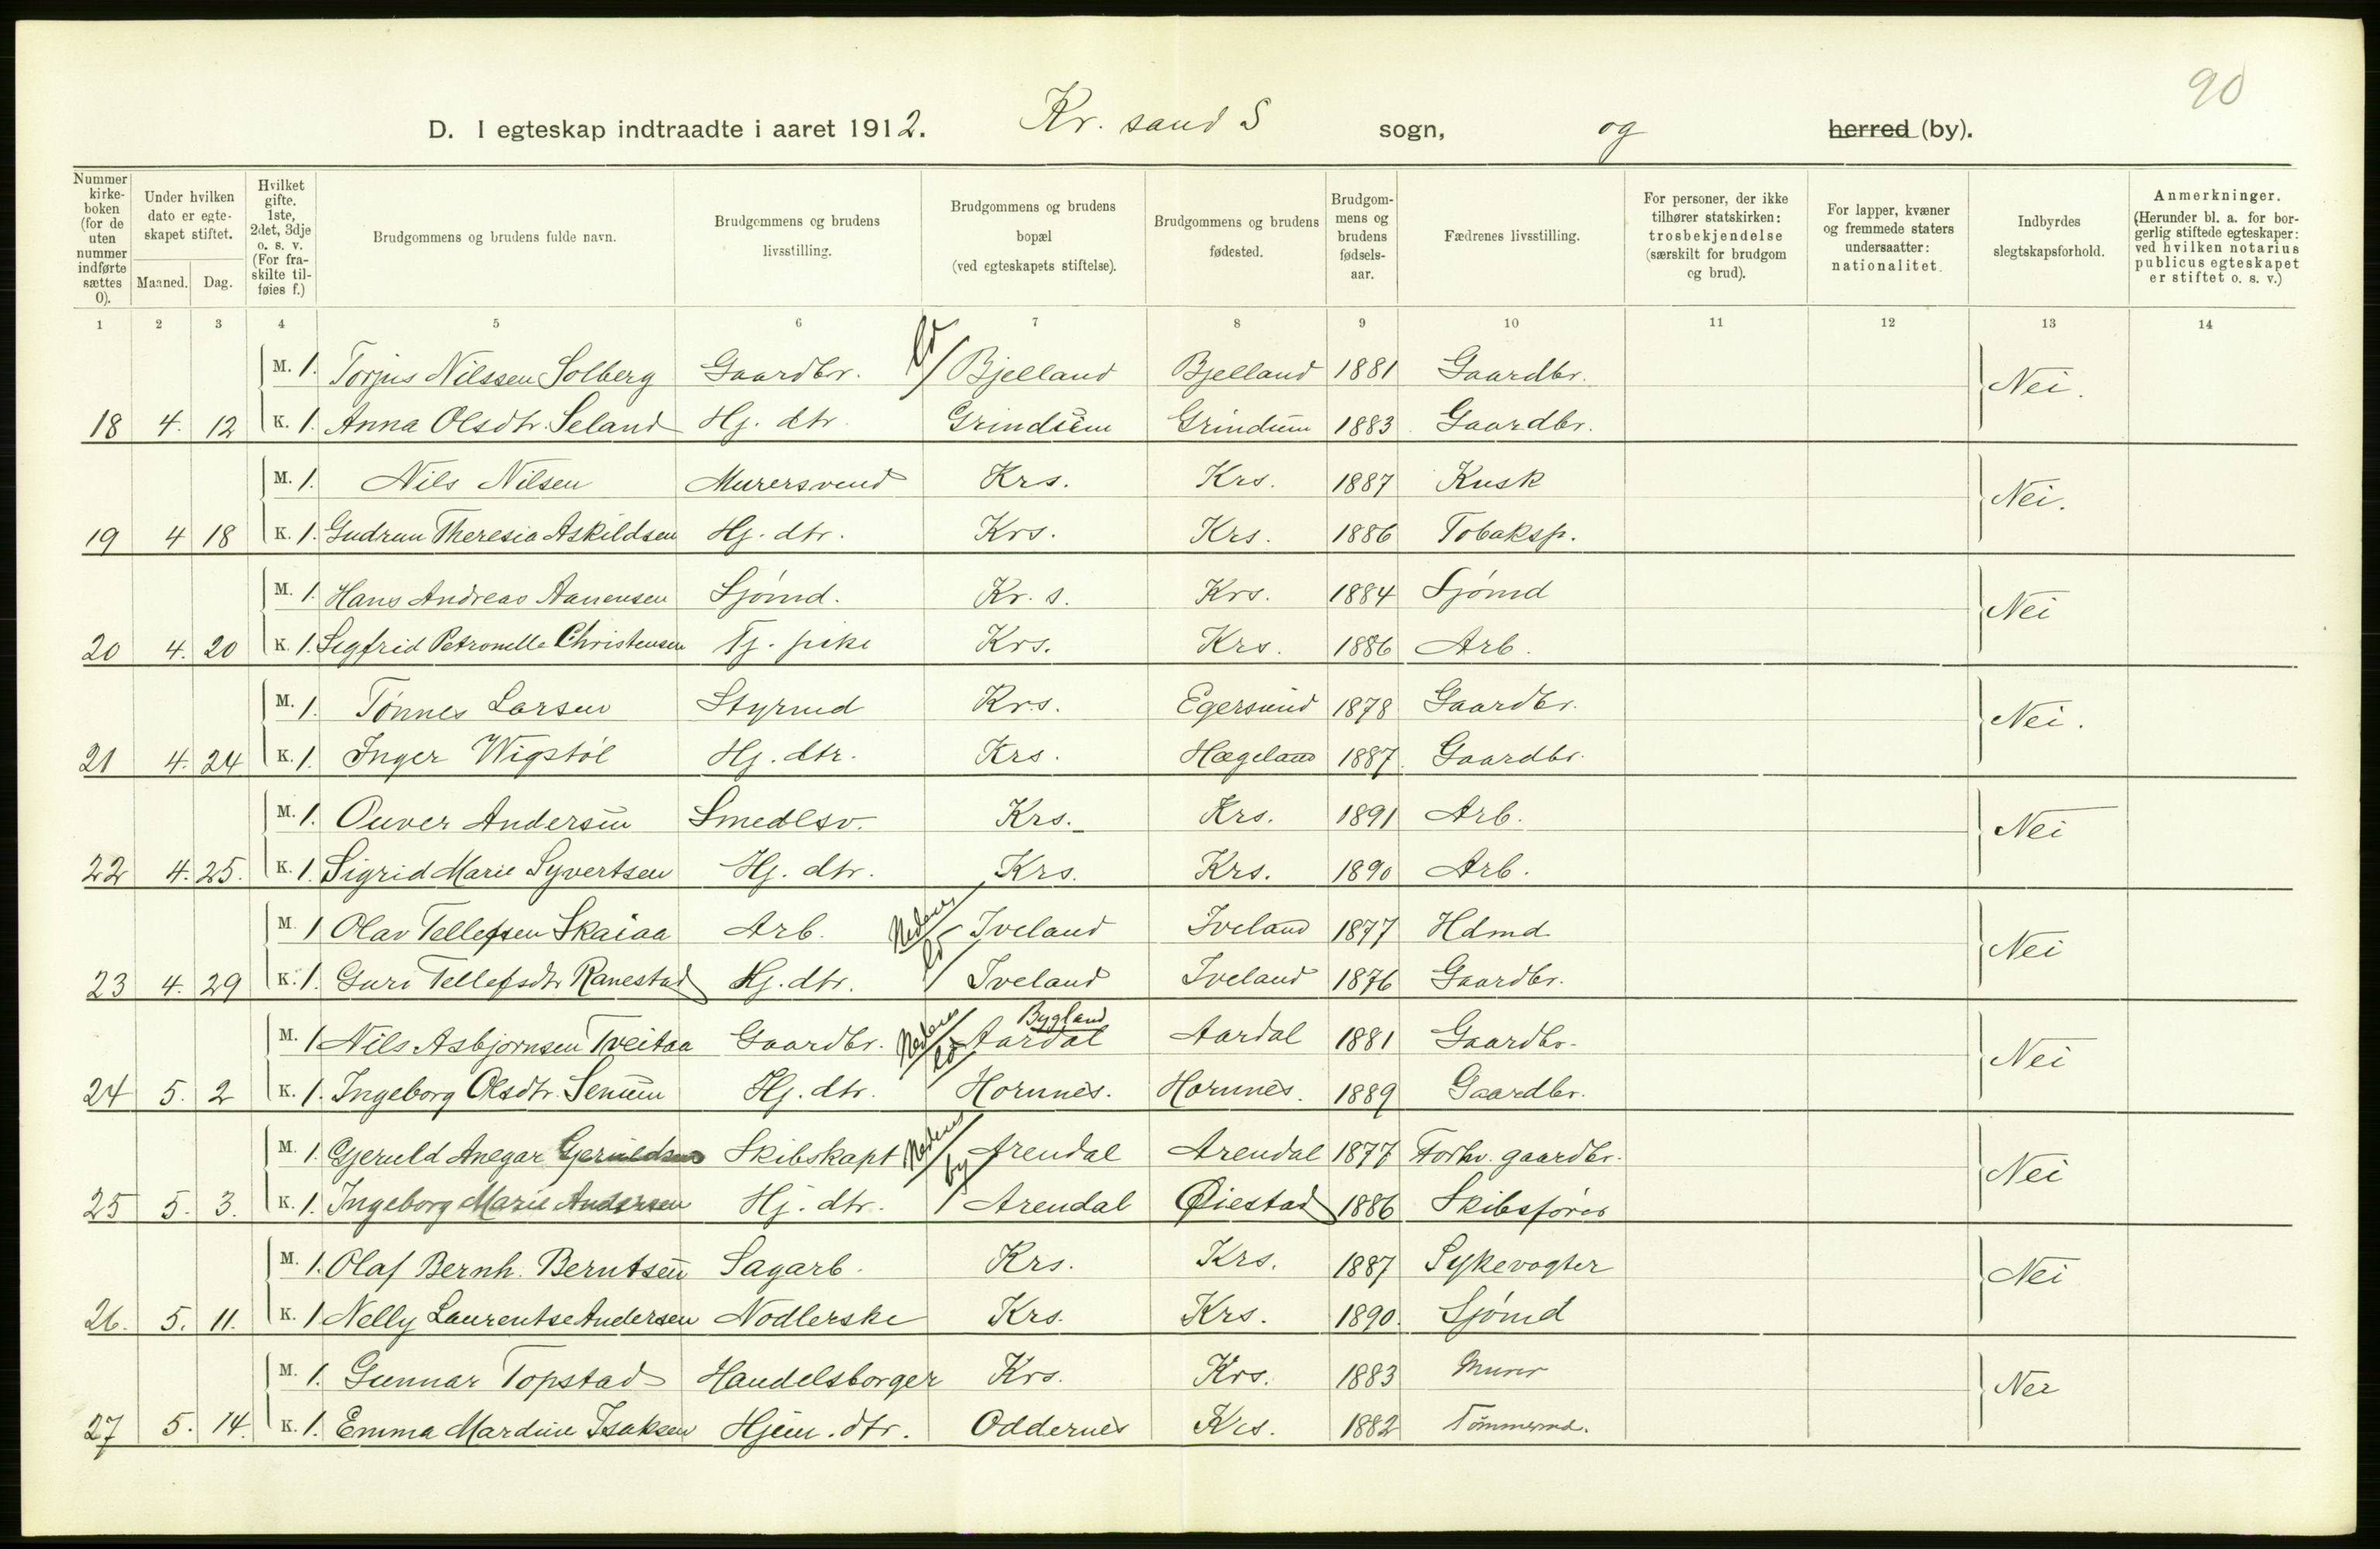 90
D. I egteskap indtraadte i aaret 1912. Kr. sand S sogn, og herred (by).
Nummer kirke-boken (for de uten nummer indførte sættes 0). | Under hvilken dato er egte-skapet stiftet. Maaned. Dag. | Hvilket gifte. 1ste, 2det, 3dje o. s. v. (For fra-skilte til-føies f.) | Brudgommens og brudens fulde navn. | Brudgommens og brudens livsstilling. | Brudgommens og brudens bopæl (ved egteskapets stiftelse). | Brudgommens og brudens fødested. | Brudgom-mens og brudens fødsels-aar. | Fædrenes livsstilling. | For personer, der ikke tilhører statskirken: trosbekjendelse (særskilt for brudgom og brud). | For lapper, kvæner og fremmede staters undersaatter: nationalitet. | Indbyrdes slegtskapsforhold. | Anmerkninger. (Herunder bl. a. for bor-gerlig stiftede egteskaper: ved hvilken notarius publicus egteskapet er stiftet o. s. v.)
1 2 3 4 5 6 7 8 9 10 11 12 13 14
M. 1. Torjus Nilssen Solberg Gaardbr. Bjelland Bjelland 1881 Gaardbr. Nei.
18 4. 12 K. 1. Anna Olsdtr. Seland Hj. dtr. Grindum Grindum 1883 Gaardbr.
M. 1. Nils Nilsen Murersvend Krs. Krs. 1887 Kusk Nei.
19 4 18 K. 1. Gudrun Theresia Askildsen Hj. dtr. Krs. Krs. 1886 Tobaksp.
M. 1. Hans Andreas Aanensen Sjómd. Kr. s. Krs. 1884 Sjómd Nei
20 4. 20 K. 1. Segfrid Petronelle Christensen Tj. pike Krs. Krs. 1886 Arb.
M. 1. Tónnes Larsen Styrmd Krs. Egersund 1878 Gaardbr. Nei.
21 4. 24 K. 1. Inger Wigstól Hj. dtr. Krs. Hægeland 1887. Gaardbr.
M. 1. Ouver Andersen Smedesv. Krs. Krs. 1891 Arb. Nei
22 4. 25. K. 1. Sigrid Marie Syvertsen Hj. dtr. Krs. Krs. 1890 Arb.
M. 1 Olav Tellefsen Skaiaa Arb. Nedenes Iveland Iveland 1877 Hdmd Nei
23 4. 29 K. 1. Guri Tellefsdtr Ranestad Hj. dtr. Iveland Iveland 1876 Gaardbr.
M. 1 Nils Asbjornsen Tveitaa Gaardbr. Nedenes Bygland Aardal Aardal 1881 Gaardbr. Nei
24 5. 2 K. 1. Ingeborg Olsdtr. Senum Hj. dtr. Hornnes. Hornnes. 1889 Gaardbr.
M. 1. Gjeruld Anegar Gjeruldsen Skibskapt Nedenes by Arendal Arendal 1877 Forhv. gaardbr. Nei
25 5. 3. K. 1. Ingeborg Marie Andersen Hj. dtr. Arendal Øiestad 1886 Skibsfórer
M. 1. Olaf Bernh. Berntsen Sagarb. Krs. Krs. 1887 Sykevogter Nei
26. 5. 11. K. 1 Nelly Laurentse Andersen Nodlerske Krs. Krs. 1890. Sjómd
M. 1. Gunnar Topstad Handelsborger Krs. Krs. 1883 Murer Nei
27 5. 14. K. 1. Emma Mardine Isaksen Hjem. dtr. Oddernes Krs. 1882 Tömmermd.